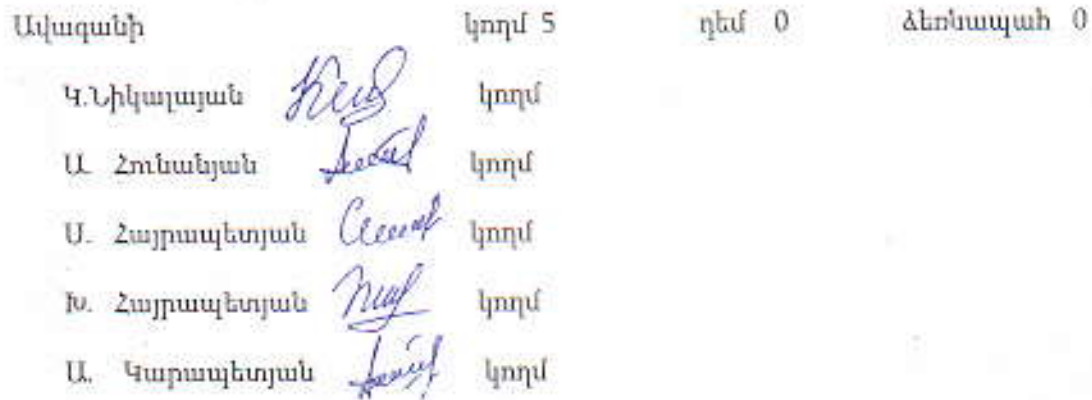 Ավագանի կողմ 5 դեմ 0 ձեռնապահ 0
Կ.Նիկալայան կողմ
Ա. Հունանյան կողմ
Ս. Հայրապետյան կողմ
Խ. Հայրապետյան կողմ
Ա. Կարապետյան կողմ